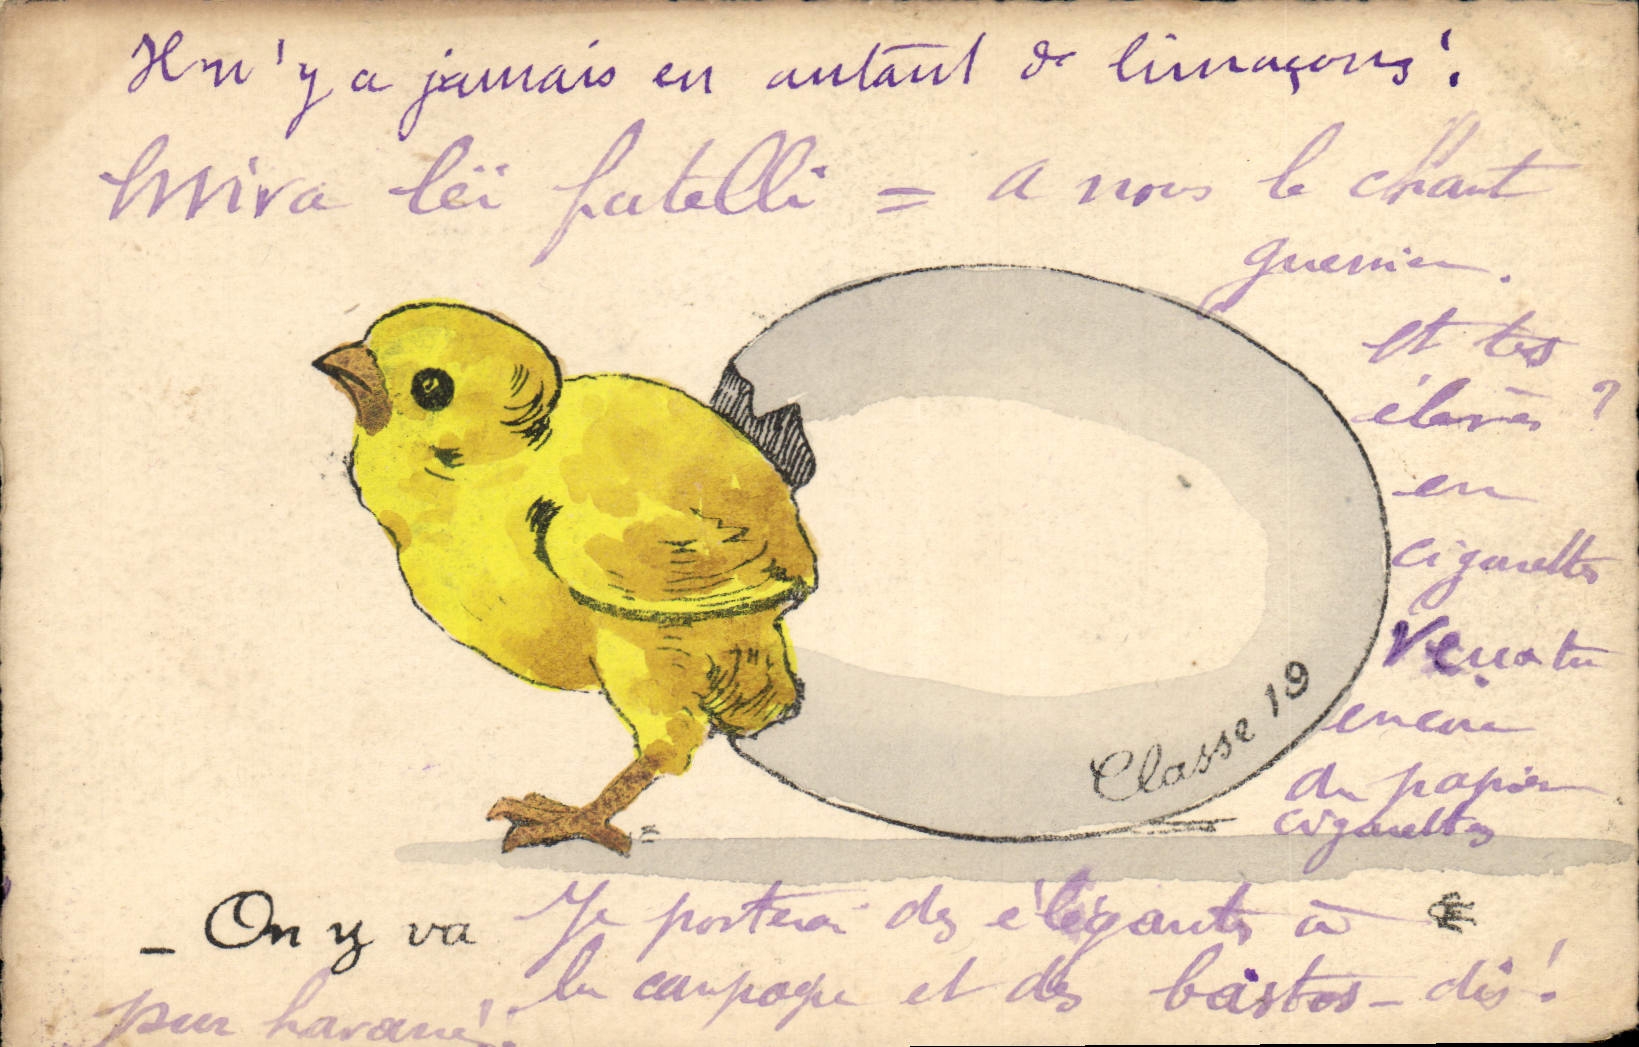 Il n'y a jamais eu autant de limaçons!
Viva léi fratelli = a nous le chant
guerrier.
Et tes
élèves ?
en
cigarettes
Veux tu
encore
du papier
cigarettes
Classe 19
_ On y va
Je porterai des élégants à
la campagne et des bastos - dis!
pur havane!